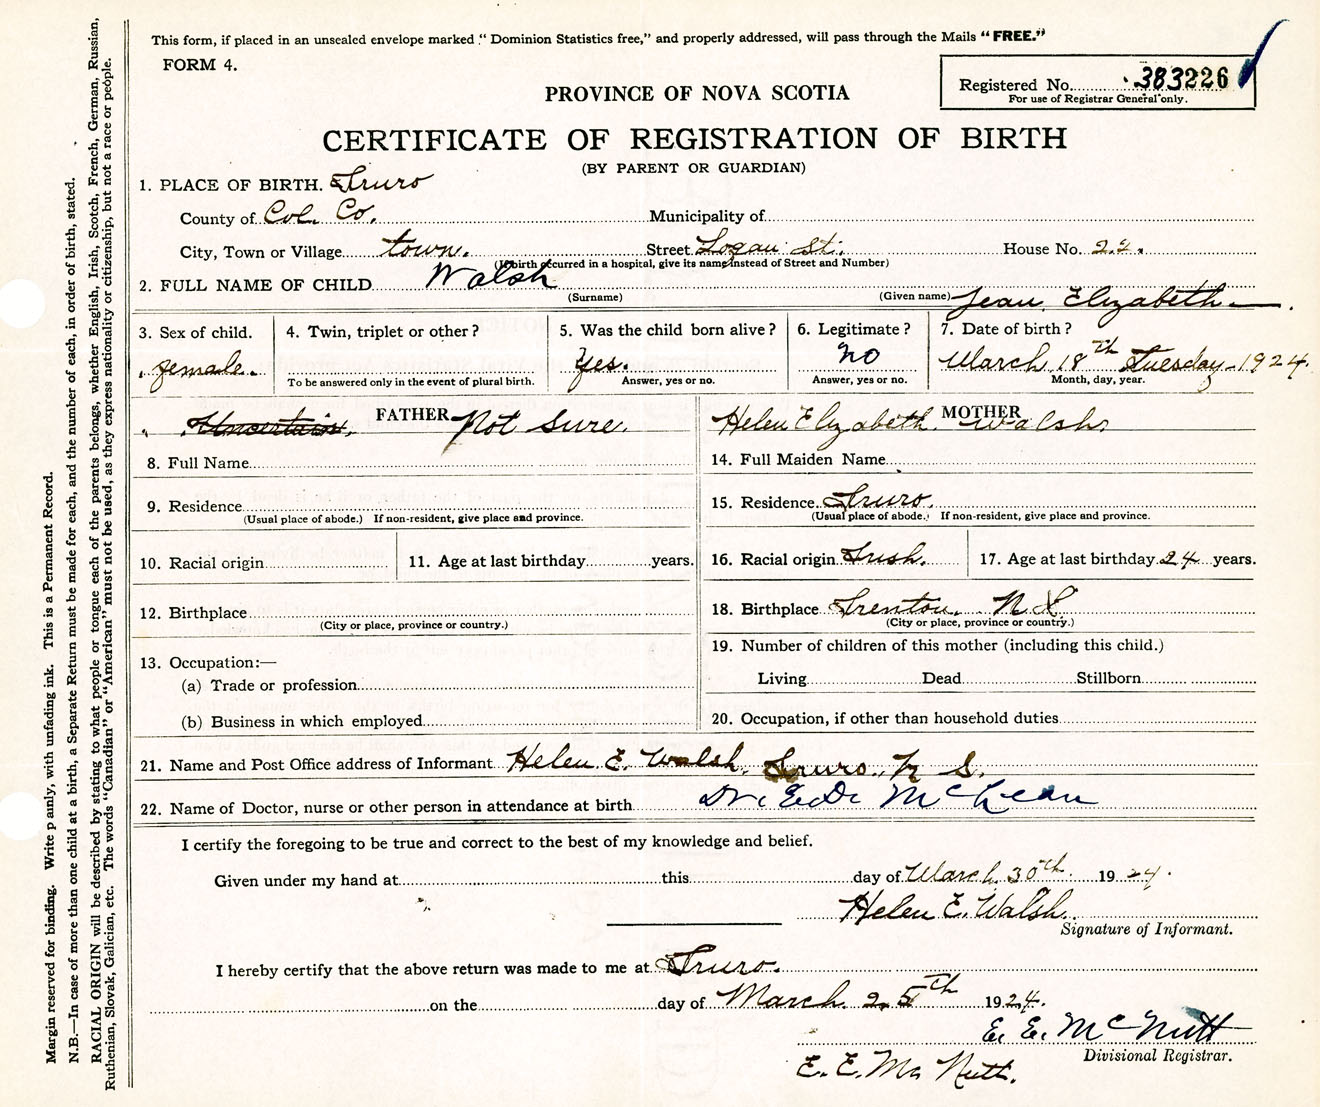 This form, if placed in an unsealed envelope marked "Dominion Statistics free," and properly addressed, will pass through the Mails "FREE."
FORM 4.
Registered No. 383226
For use of Registrar General only.
PROVINCE OF NOVA SCOTIA
CERTIFICATE OF REGISTRATION OF BIRTH
(BY PARENT OR GUARDIAN)
1. PLACE OF BIRTH. Truro
County of Col. Co. Municipality of
City, Town or Village town. Street Logan St. House No. 22.
(If birth occurred in a hospital, give its name instead of Street and Number)
2. FULL NAME OF CHILD Walsh Jean Elizabeth
(Surname) (Given name)
3. Sex of child. female.
4. Twin, triplet or other?
To be answered only in the event of plural birth.
5. Was the child born alive? Yes.
Answer, yes or no.
6. Legitimate? no
Answer, yes or no.
7. Date of birth? March 18th Tuesday-1924.
Month, day, year.
Uncertain. FATHER Not sure.
8. Full Name
9. Residence
(Usual place of abode.) If non-resident, give place and province.
10. Racial origin 11. Age at last birthday years.
12. Birthplace
(City or place, province or country.)
13. Occupation:—
(a) Trade or profession
(b) Business in which employed
MOTHER
Helen Elizabeth Walsh.
14. Full Maiden Name
15. Residence Truro.
(Usual place of abode.) If non-resident, give place and province.
16. Racial origin Irish. 17. Age at last birthday 24 years.
18. Birthplace Trenton. N S
(City or place, province or country.)
19. Number of children of this mother (including this child.)
Living Dead Stillborn
20. Occupation, if other than household duties
21. Name and Post Office address of Informant Helen E. Walsh. Truro. N S.
22. Name of Doctor, nurse or other person in attendance at birth Dr. McLean
I certify the foregoing to be true and correct to the best of my knowledge and belief.
Given under my hand at this day of March 30th 1924.
Helen E. Walsh.
Signature of Informant.
I hereby certify that the above return was made to me at Truro.
on the day of March 25th 1924.
E. E. McNutt
Divisional Registrar.
E. E. Mc Nutt.
Margin reserved for binding. Write p anly, with unfading ink. This is a Permanent Record.
N.B.—In case of more than one child at a birth, a Separate Return must be made for each, and the number of each, in order of birth, stated.
RACIAL ORIGIN will be described by stating to what people or tongue each of the parents belongs, whether English, Irish, Scotch, French, German, Russian,
Ruthenian, Slovak, Galician, etc. The words "Canadian" or "American" must not be used, as they express nationality or citizenship, but not a race or people.